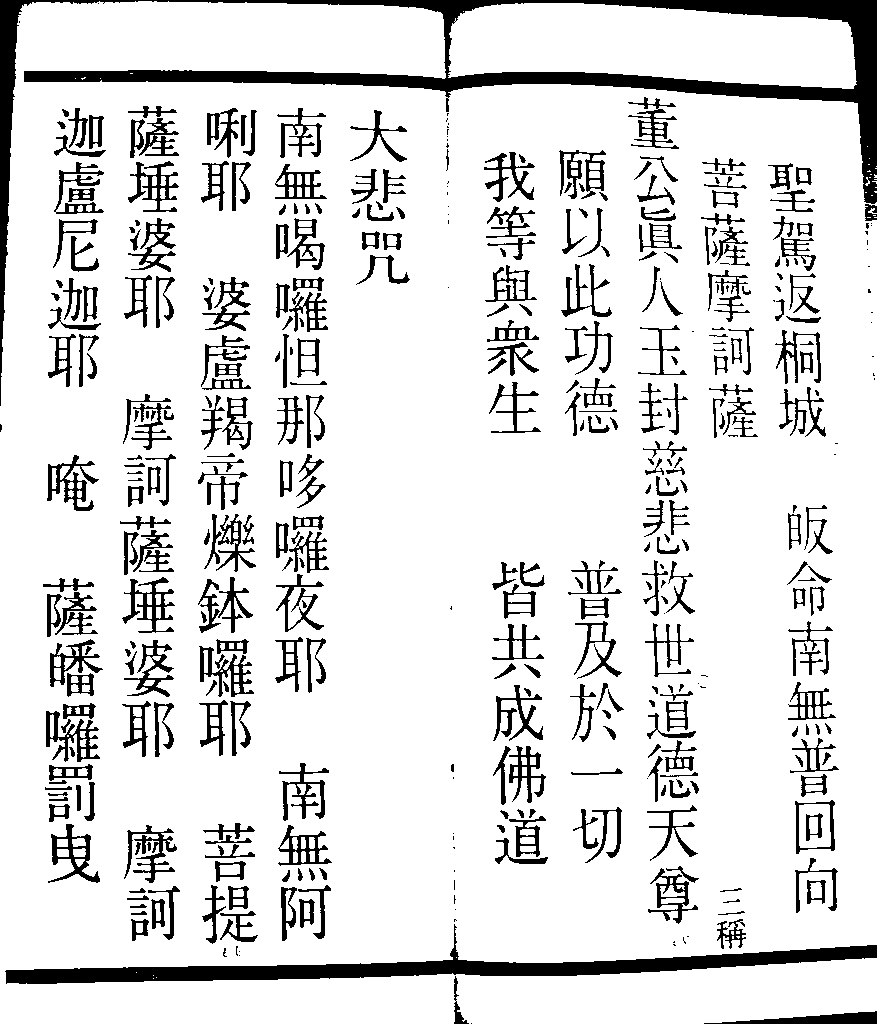 聖駕返桐城　皈命南無普回向
菩薩摩訶薩　三稱
董公眞人玉封慈悲救世道德天尊
願以此功德　普及於一切
我等與衆生　皆共成佛道
大悲咒
南無喝囉怛那哆囉夜耶　南無阿
唎耶　婆盧羯帝爍鉢囉耶　菩提
薩埵婆耶　摩訶薩埵婆耶　摩訶
迦盧尼迦耶　唵　薩皤囉罰曳